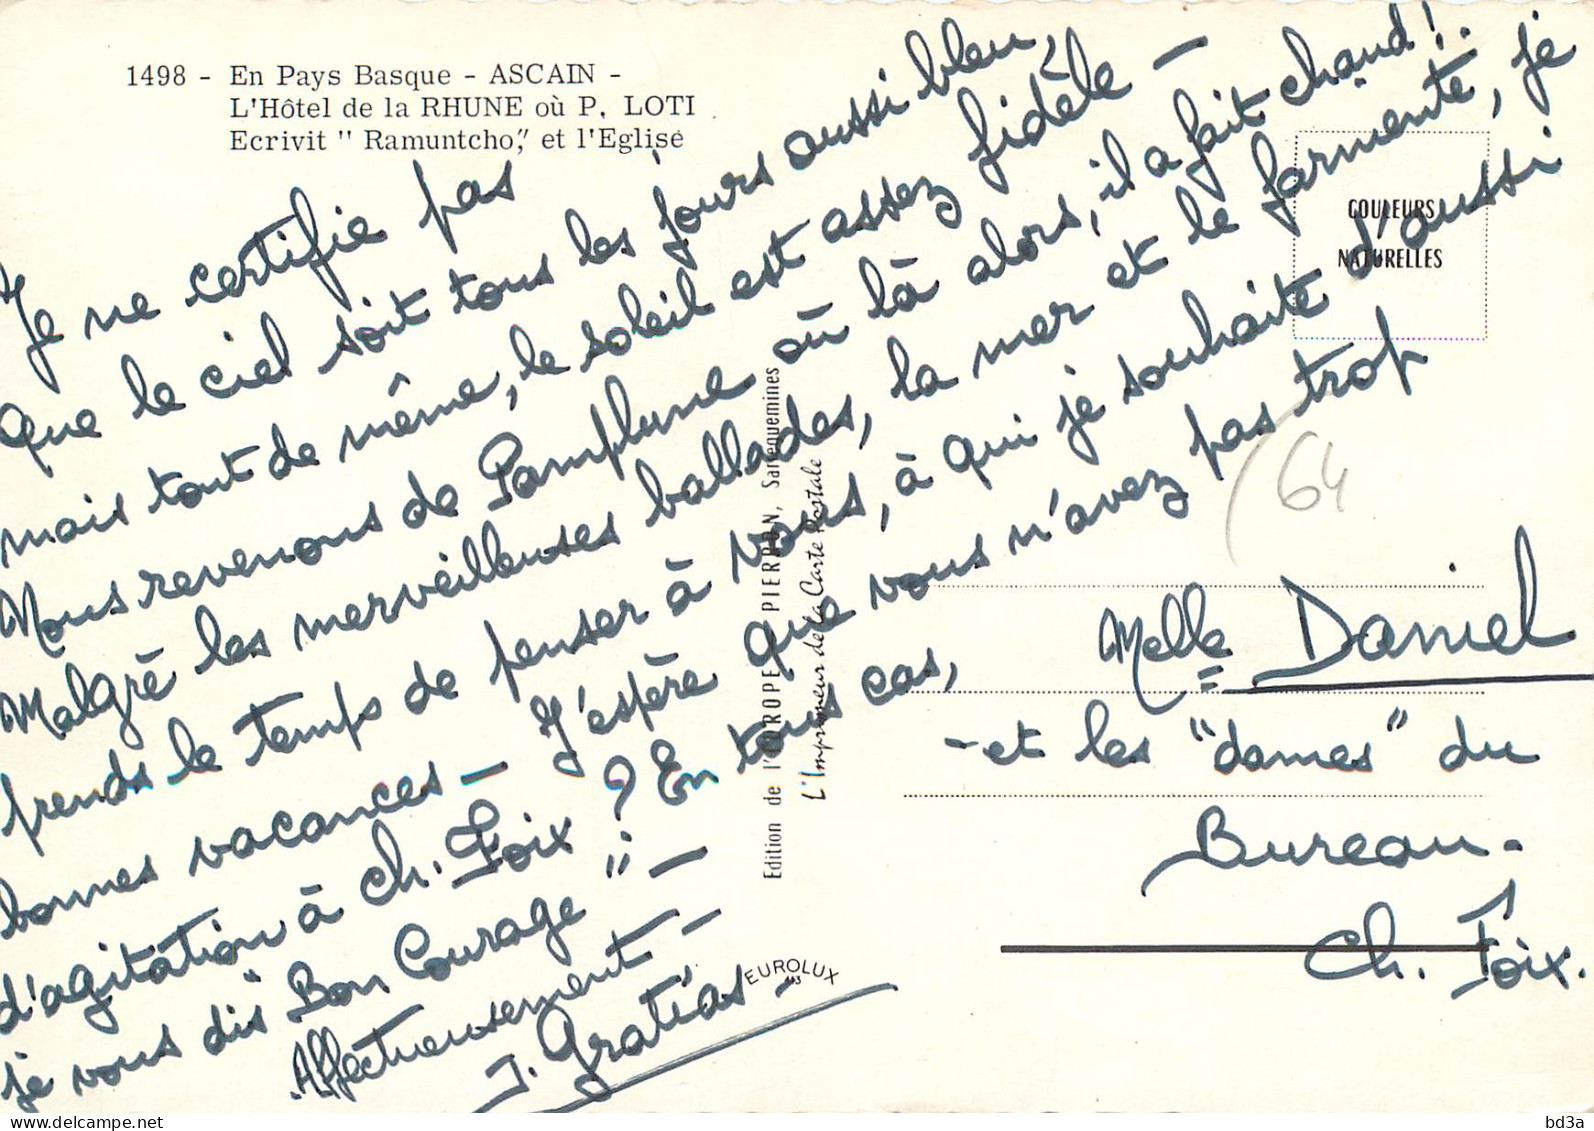 1498 - En Pays Basque - ASCAIN -
L'Hôtel de la RHUNE où P. LOTI
Ecrivit " Ramuntcho," et l'Eglise
Je ne certifie pas
que le ciel soit tous les jours aussi bleu,
mais tout de même, le soleil est assez fidèle -
Nous revenons de Pamplune où là alors, il a fait chaud!.
Malgré les merveilleuses ballades, la mer et le farmenté, je
prends le temps de penser à vous, à qui je souhaite d'aussi
bonnes vacances - J'espère que vous n'avez pas trop
d'agitation à Ch. Foix ? En tous cas,
je vous dis "Bon Courage" -
Affectueusement -
J. Gratias -
Edition de l'EUROPE PIERRON, Sarreguemines
L'Imprimeur de la Carte Postale
EUROLUX
COULEURS
NATURELLES
64
Melle Daniel
- et les "dames" du
Bureau.
Ch. Foix.
bd3a